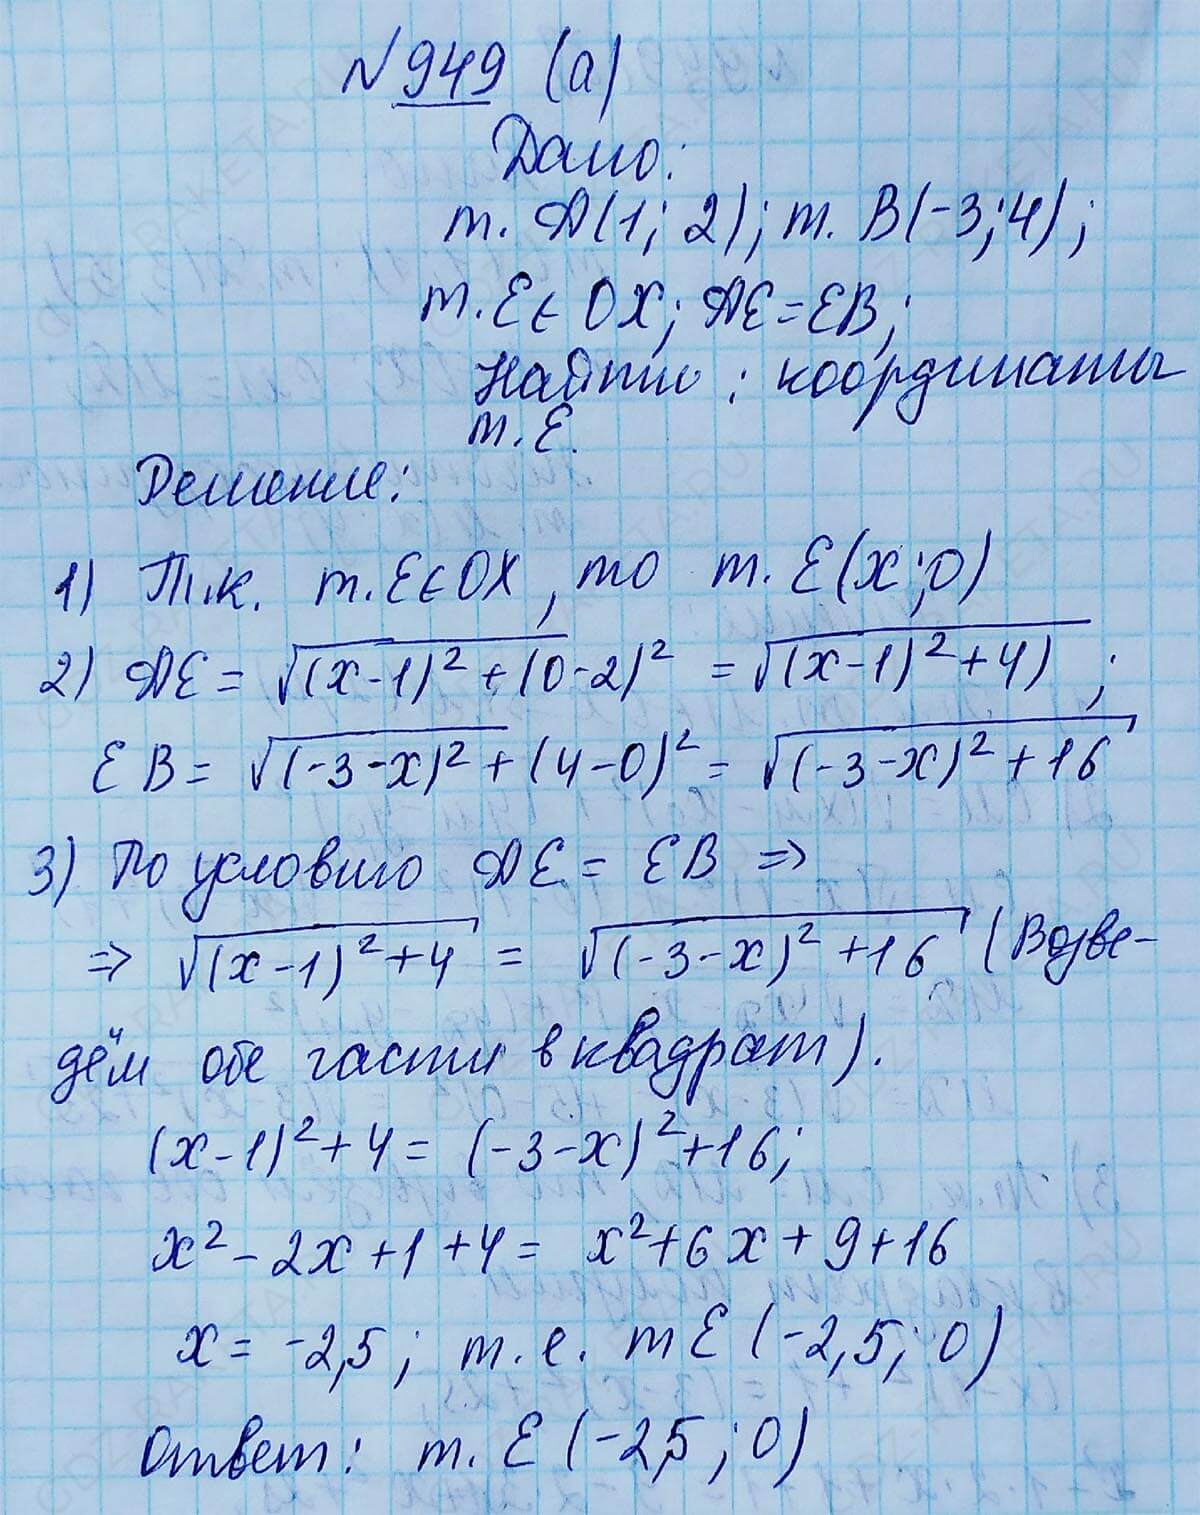 №949 (а)
Дано:
т. А(1; 2); т. В(-3; 4);
т. E ∈ OX; AE = EB;
Найти: координаты
т. E.
Решение:
1) Т.к. т. E ∈ OX, то т. E(x; 0)
2) AE = √(x-1)² + (0-2)² = √(x-1)² + 4) ;
EB = √(-3-x)² + (4-0)² = √(-3-x)² + 16
3) По условию AE = EB =>
=> √(x-1)² + 4 = √(-3-x)² + 16 (Возве-
дём обе части в квадрат).
(x-1)² + 4 = (-3-x)² + 16;
x² - 2x + 1 + 4 = x² + 6x + 9 + 16
x = -2,5; т.е. т E (-2,5; 0)
Ответ: т. E (-2,5; 0)